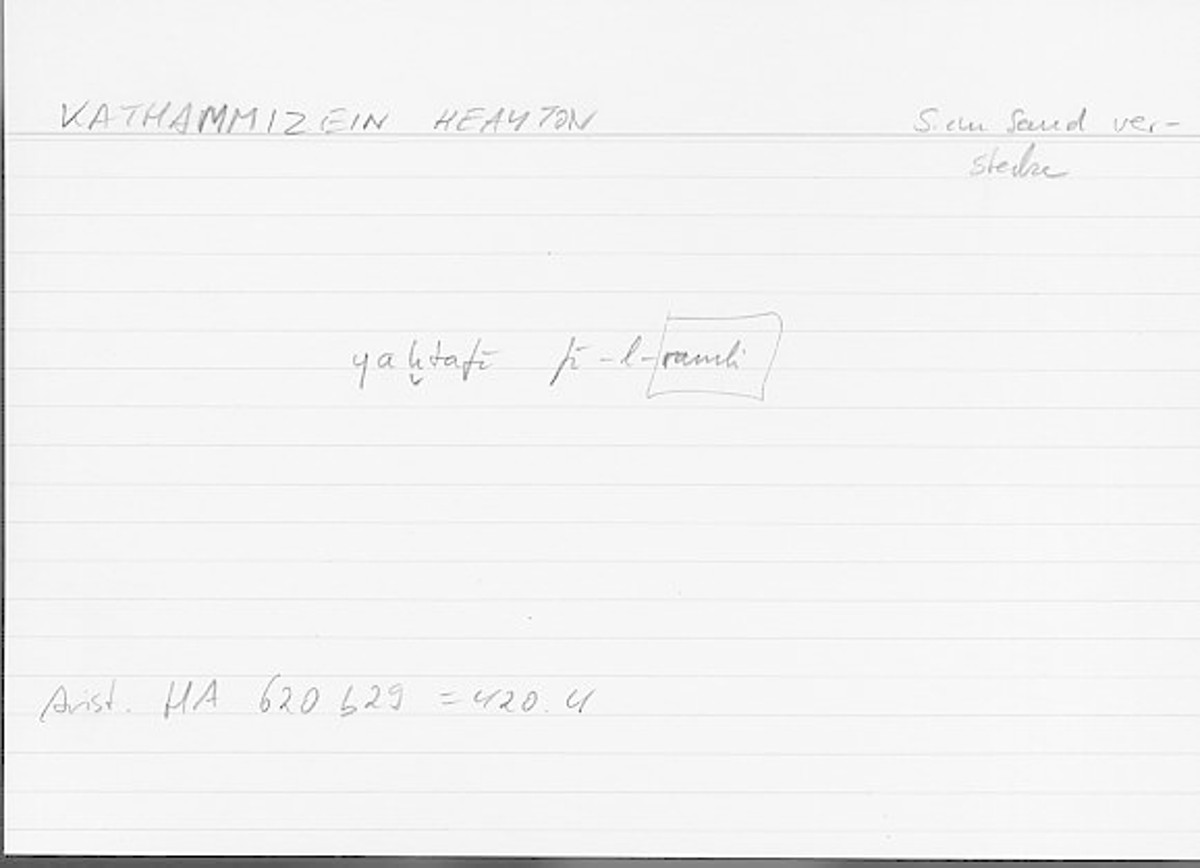 KATHAMMIZEIN HEAYTON S. im Sand ver-
stecke
yaḫtafī fī-l-ramli
Arist. HA 620 b29 = 420.4